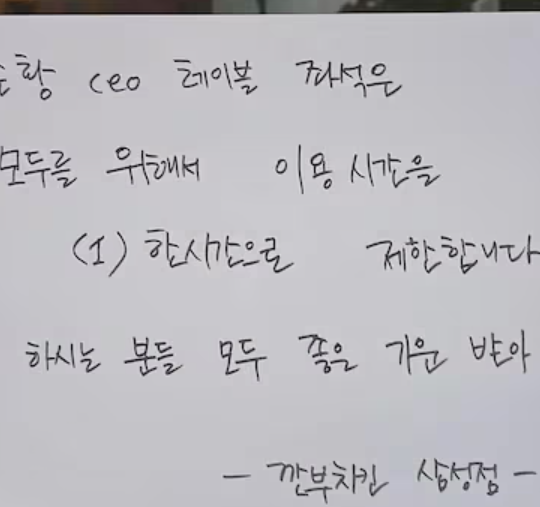 황 ceo 테이블 좌석은
모두를 위해서 이용 시간을
(1) 한시간으로 제한합니다
하시는 분들 모두 좋은 기운 받아
- 깐부치킨 삼성점 -